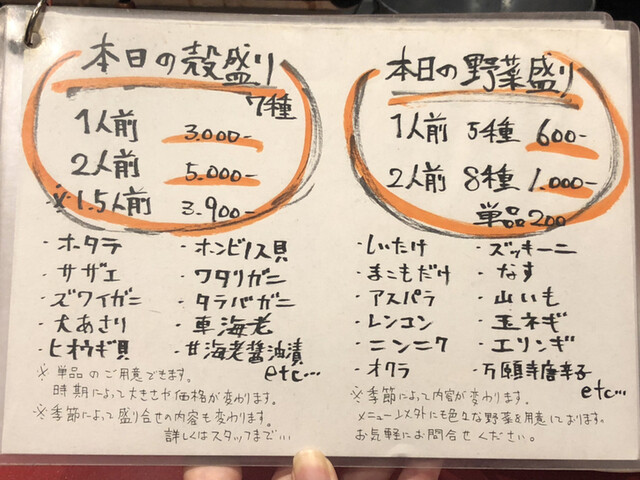 本日の殻盛り
7種
1人前 3.000-
2人前 5.000-
※1.5人前 3.900-
・ホタテ ・ホンビノス貝
・サザエ ・ワタリガニ
・ズワイガニ ・タラバガニ
・大あさり ・車海老
・ヒオウギ貝 ・甘海老醤油漬
etc…
※単品のご用意できます。
時期によって大きさや価格が変わります。
※季節によって盛り合せの内容も変わります。
詳しくはスタッフまで…
本日の野菜盛り
1人前 5種 600-
2人前 8種 1.000-
単品200
・しいたけ ・ズッキーニ
・まこもだけ ・なす
・アスパラ ・山いも
・レンコン ・玉ネギ
・ニンニク ・エリンギ
・オクラ ・万願寺唐辛子
etc…
※季節によって内容が変わります。
メニュー以外にも色々な野菜を用意しております。
お気軽にお問合せください。